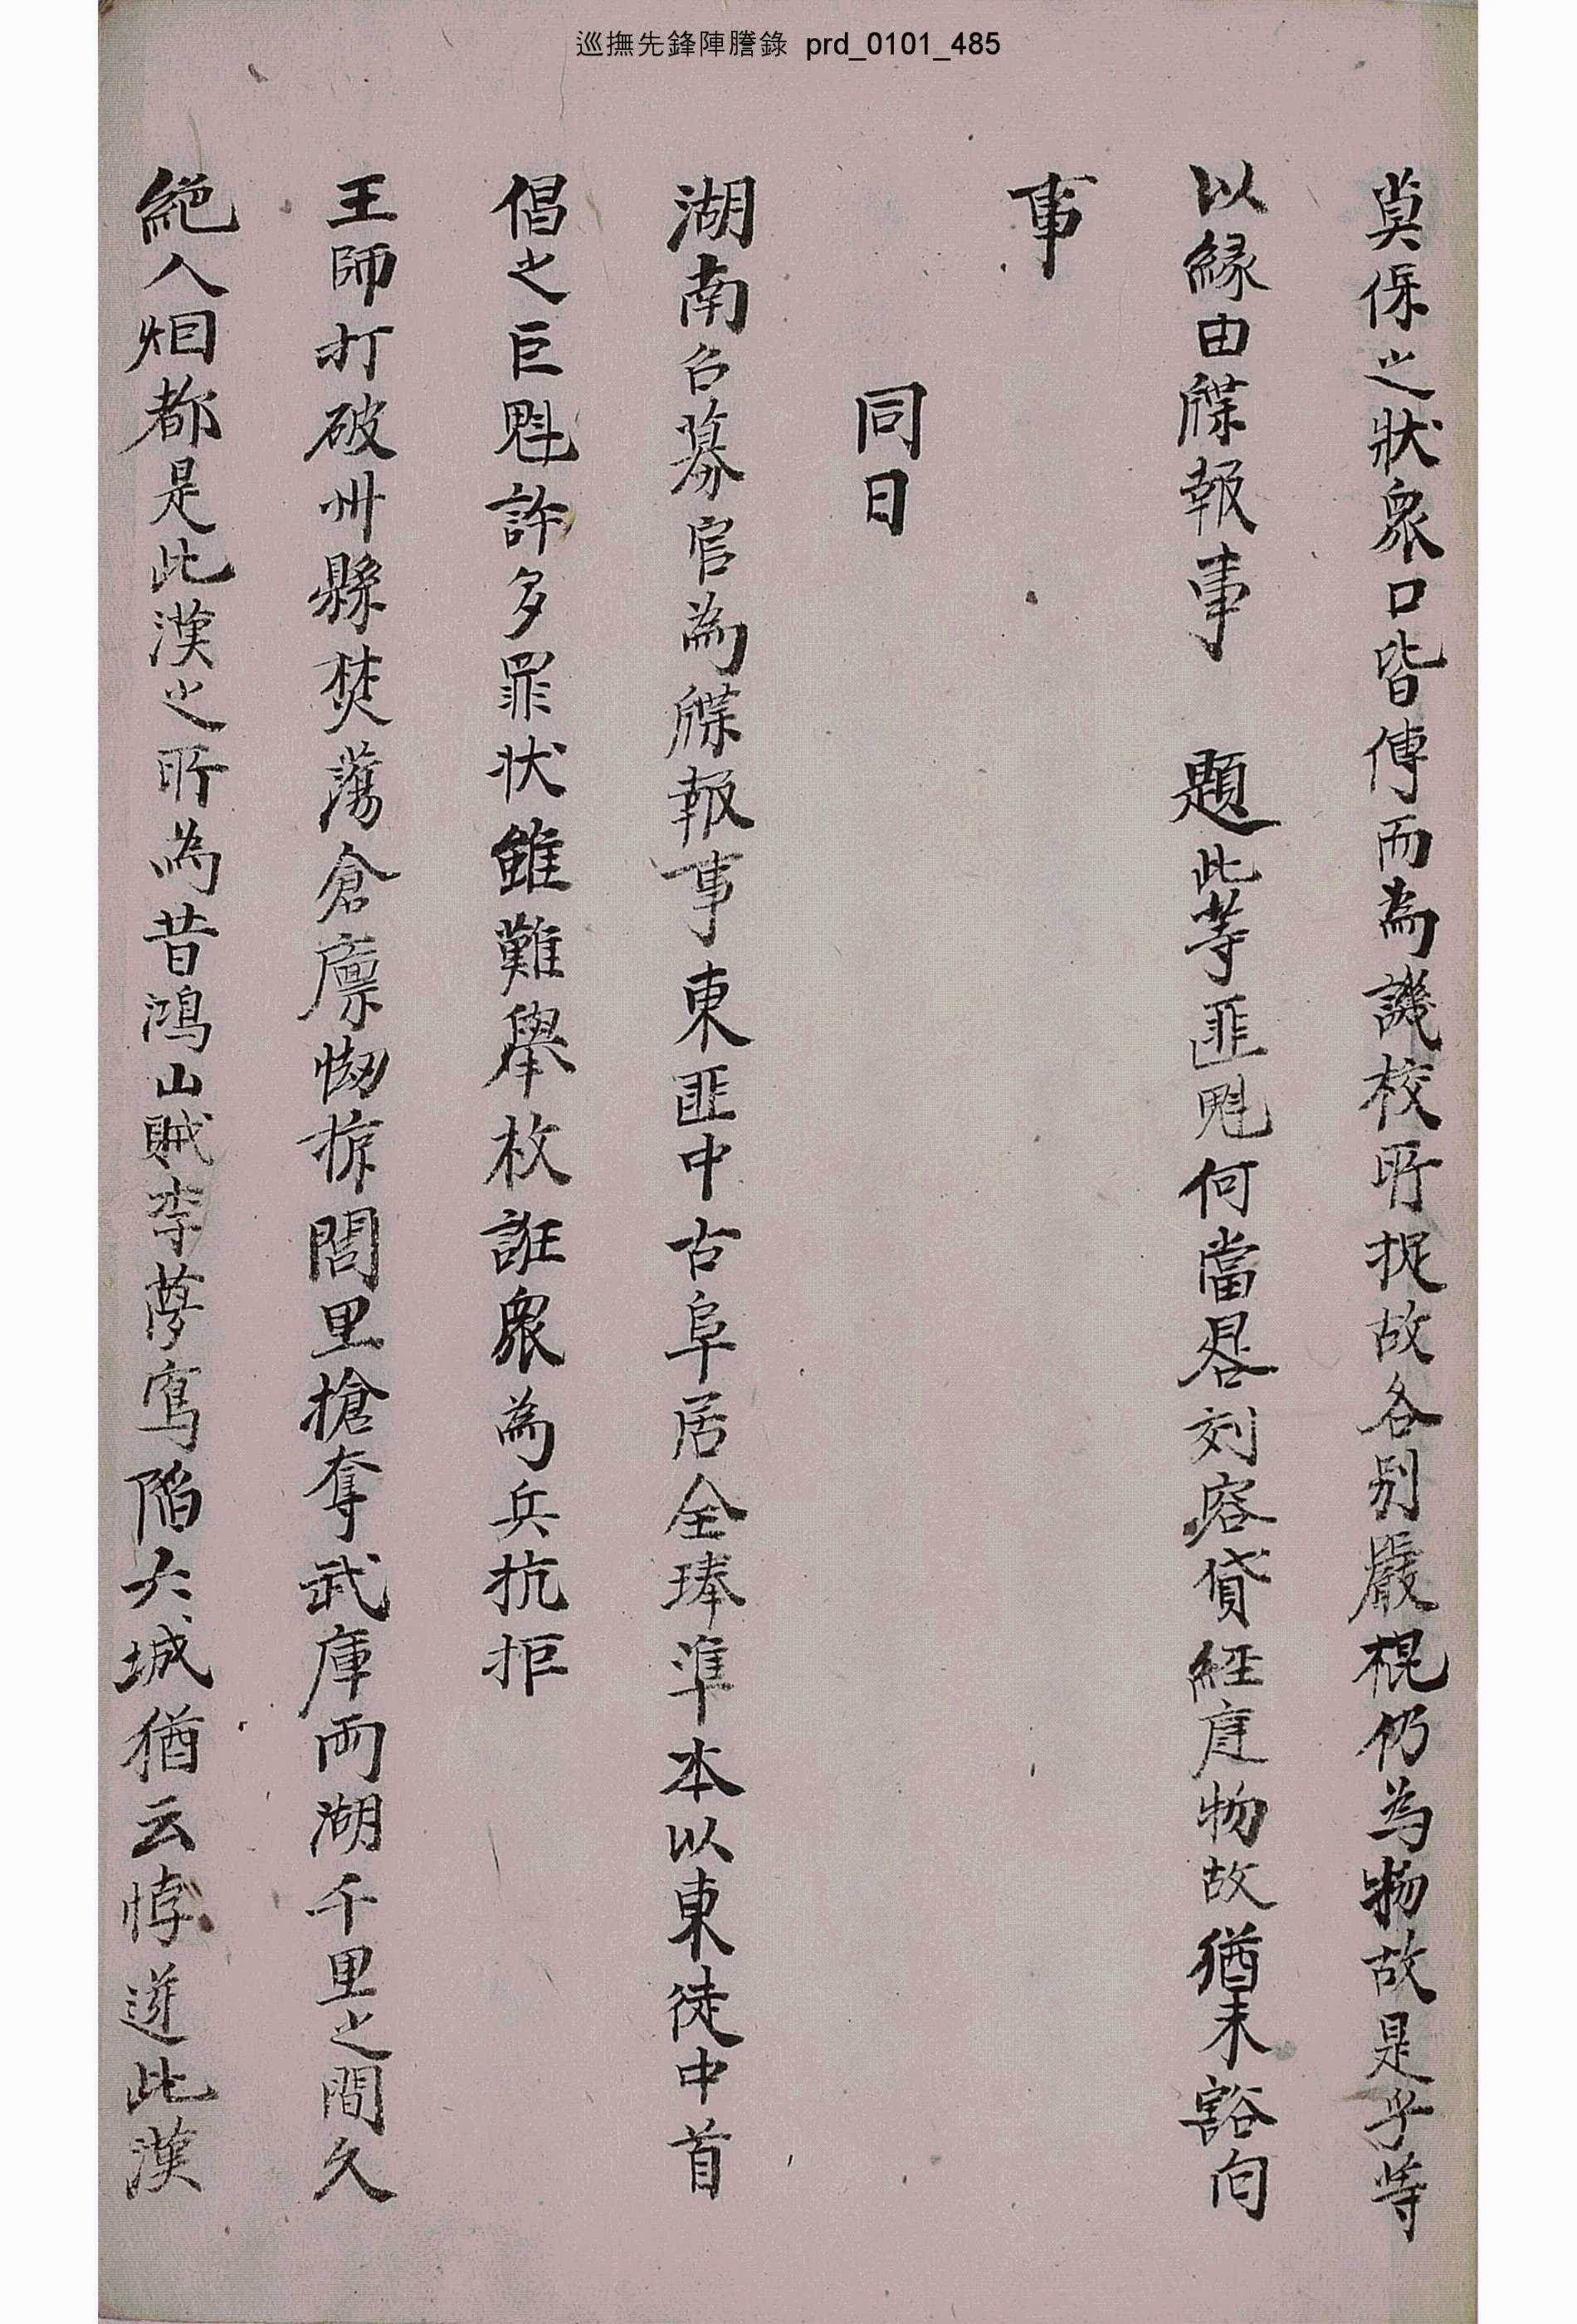 巡撫先鋒陣謄錄 prd_0101_485
莫保之狀衆口皆傳而爲譏校所捉故各別嚴棍仍爲物故是乎等
以緣由牒報事 題此等匪魁何當晷刻容貸經庭物故猶未豁向
事
同日
湖南召募官爲牒報事東匪中古阜居全琫準本以東徒中首
倡之巨魁許多罪状雖難擧枚誑衆爲兵抗拒
王師打破州縣焚蕩倉廩刼掠閭里搶奪武庫両湖千里之間久
絕人烟都是此漢之所爲昔鴻山賊李夢寉陷六城猶云悖逆此漢